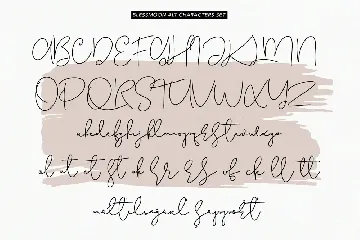 BLESSMOON ALT CHARACTERS SET
ABCDEFGHIJKLMN
OPQRSTUVWXYZ
abcdefghijklmnopqrstuvwxyz
multilingual support